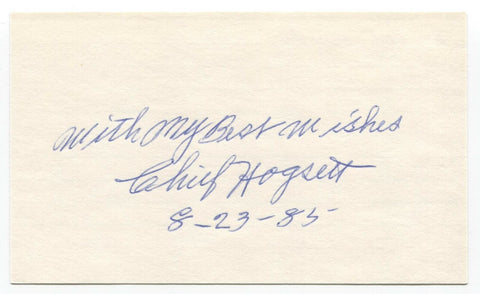 With My Best Wishes
Chief Hogsett
8-23-85